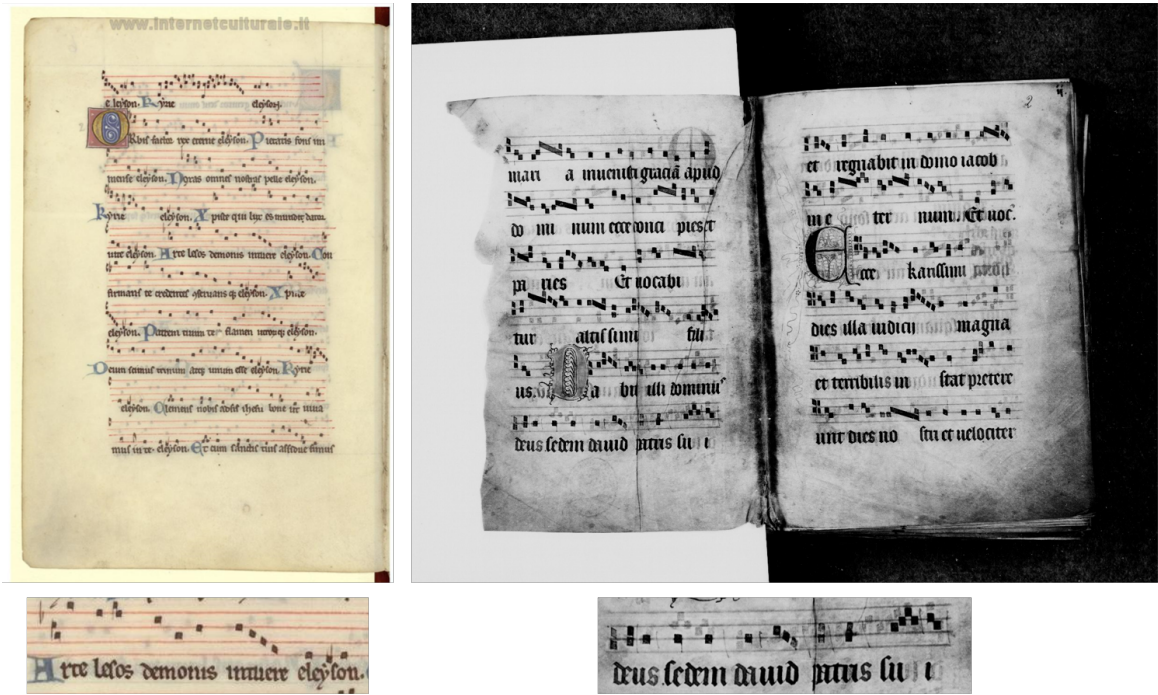 www.internetculturale.it
eleyson. Kyrie eleyson.
Orbis factor rex eterne eleyson. Pietatis fons im
mense eleyson. Noxas omnes nostras pelle eleyson.
Kyrie eleyson. Xpiste qui lux es mundi dator
vite eleyson. Arte lesos demonis intuere eleyson. Con
firmans te credentes eleyson. Xpiste
eleyson. Patrem tuum te flamen eleyson.
Deum scimus unum esse eleyson. Kyrie
eleyson. Clemens nobis adsis
mus in te eleyson. Et cum sanctis tuis simus
mari a invenisti graciã apud
do mi num ecce concipies et
pa ries Et vocabi
tur altissimi fili
us. Da bit illi dominus
deus sedem david patris su i
2
et regnabit in domo iacob
in e ter num. Et voc.
Ecce karissimi
dies illa iudicii magna
et terribilis in stat pretere
unt dies no stri et velociter
Arte lesos demonis intuere eleyson.
deus sedem david patris su i